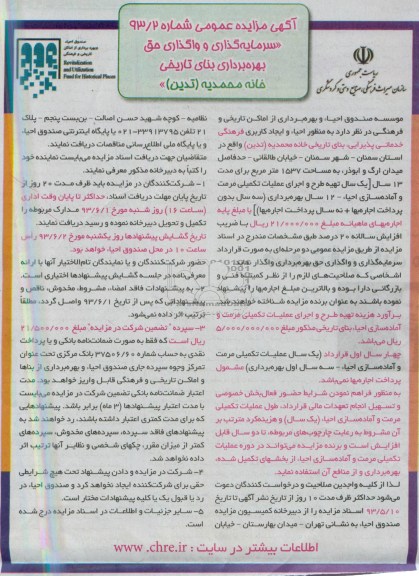 آگهی مزایده عمومی شماره ۹۳/۲
«سرمایه‌گذاری و واگذاری حق
بهره‌برداری بنای تاریخی
خانه محمدیه (تدین)»
صندوق احیاء
Revitalization
and Utilization
Fund for Historical Places
ریاست جمهوری
سازمان میراث فرهنگی، صنایع دستی و گردشگری
موسسه صندوق احیاء و بهره‌برداری از اماکن تاریخی و
فرهنگی در نظر دارد به منظور احیا و ایجاد کاربری فرهنگی
خدماتی پذیرایی، بنای تاریخی خانه محمدیه (تدین) واقع در
استان سمنان - شهر سمنان - خیابان طالقانی - حدفاصل
میدان ارگ و ابوذر، به مساحت ۱۵۳۷ متر مربع برای مدت
۱۳ سال [یک سال تهیه طرح و اجرای عملیات تکمیلی مرمت
و آماده‌سازی احیاء - ۱۲ سال بهره‌برداری (سه سال بدون
پرداخت اجاره‌بها + نه سال پرداخت اجاره‌بها)] با مبلغ پایه
اجاره‌بهای ماهیانه مبلغ ۲۱/۰۰۰/۰۰۰ ریال با ضریب
افزایش سالانه ۲۰ درصد طبق مشخصات مندرج در اسناد
مزایده از طریق مزایده عمومی دو مرحله‌ای به صورت قرارداد
سرمایه‌گذاری و واگذاری حق بهره‌برداری واگذار نماید.
اشخاصی که صلاحیت‌های لازم را از نظر کمیته فنی و
بازرگانی دارا بوده و بالاترین مبلغ اجاره‌بها را پیشنهاد
نموده باشند به عنوان برنده مزایده شناخته خواهند شد.
برآورد هزینه تهیه طرح و اجرای عملیات تکمیلی مرمت و
آماده‌سازی احیا، بنای تاریخی مذکور مبلغ ۵/۰۰۰/۰۰۰/۰۰۰
ریال می‌باشد.
چهار سال اول قرارداد (یک سال عملیات تکمیلی مرمت
و آماده‌سازی احیاء - سه سال اول بهره‌برداری) مشمول
پرداخت اجاره‌بها نمی‌باشد.
به منظور فراهم نمودن شرایط حضور فعال بخش خصوصی
و تسهیل انجام تعهدات مالی قرارداد، طول عملیات تکمیلی
مرمت و آماده‌سازی احیا، (یک سال) و هزینه‌کرد مترتب بر
آن مشروط به رعایت چارچوب‌های مربوطه، تا دو سال قابل
افزایش است و برنده مزایده می‌تواند در دوره عملیات
تکمیلی مرمت و آماده‌سازی احیا، از بخشهای تکمیل شده،
بهره‌برداری و از منافع آن استفاده نماید.
لذا از کلیه واجدین صلاحیت و درخواست کنندگان دعوت
می‌شود حداکثر ظرف مدت ۱۰ روز از تاریخ نشر آگهی تا تاریخ
۹۳/۵/۱۰ اسناد مزایده را از دبیرخانه کمیسیون مزایده
صندوق احیا، به نشانی تهران - میدان بهارستان - خیابان
نظامیه - کوچه شهید حسن اصالت - بن‌بست پنجم - پلاک
۲۱ تلفن ۳۳۹۱۳۷۹۵-۰۲۱ یا پایگاه اینترنتی صندوق احیا،
و یا پایگاه ملی اطلاع‌رسانی مناقصات دریافت نمایند.
متقاضیان جهت دریافت اسناد مزایده می‌بایست نماینده خود
را کتباً به دبیرخانه مذکور معرفی نمایند.
۱- شرکت‌کنندگان در مزایده باید ظرف مدت ۲۰ روز از
تاریخ پایان مهلت دریافت اسناد، حداکثر تا پایان وقت اداری
(ساعت ۱۶) روز شنبه مورخ ۹۳/۶/۱ مدارک مربوطه را
تکمیل و تحویل دبیرخانه نموده و رسید دریافت نمایند.
تاریخ گشایش پیشنهادها روز یکشنبه مورخ ۹۳/۶/۲ راس
ساعت ۱۰ در محل صندوق احیا، خواهد بود.
حضور شرکت‌کنندگان و یا نمایندگان تام‌الاختیار آنها با ارائه
معرفی‌نامه در جلسه گشایش پیشنهادها اختیاری است.
۲- به پیشنهادات فاقد امضاء، مشروط، مخدوش، ناقص و
پیشنهاداتی که پس از تاریخ ۹۳/۶/۱ واصل گردد، مطلقاً
ترتیب اثر داده نمی‌شود.
۳- سپرده "تضمین شرکت در مزایده" مبلغ ۲۱/۵۰۰/۰۰۰
ریال است که فقط به صورت ضمانت‌نامه بانکی و یا پرداخت
نقدی به حساب شماره ۳۷۵۰۶/۶۰ بانک مرکزی تحت عنوان
تمرکز وجوه سپرده جاری صندوق احیا، و بهره‌برداری از بناها
و اماکن تاریخی و فرهنگی قابل واریز خواهد بود. مدت
اعتبار ضمانت‌نامه بانکی تضمین شرکت در مزایده می‌بایست
با مدت اعتبار پیشنهادها (۳ ماه) برابر باشد. پیشنهادهایی
که برای مدت کمتری اعتبار داشته باشند، رد خواهند شد. به
پیشنهادهای فاقد سپرده، سپرده‌های مخدوش، سپرده‌های
کمتر از میزان مقرر، چکهای شخصی و نظایر آنها ترتیب اثر
داده نخواهد شد.
۴- شرکت در مزایده و دادن پیشنهاد تحت هیچ شرایطی
حقی برای شرکت‌کننده ایجاد نخواهد کرد و صندوق احیا، در
رد یا قبول یک یا کلیه پیشنهادات مختار است.
۵- سایر جزئیات و اطلاعات در اسناد مزایده درج شده
است.
اطلاعات بیشتر در سایت : www .chre.ir